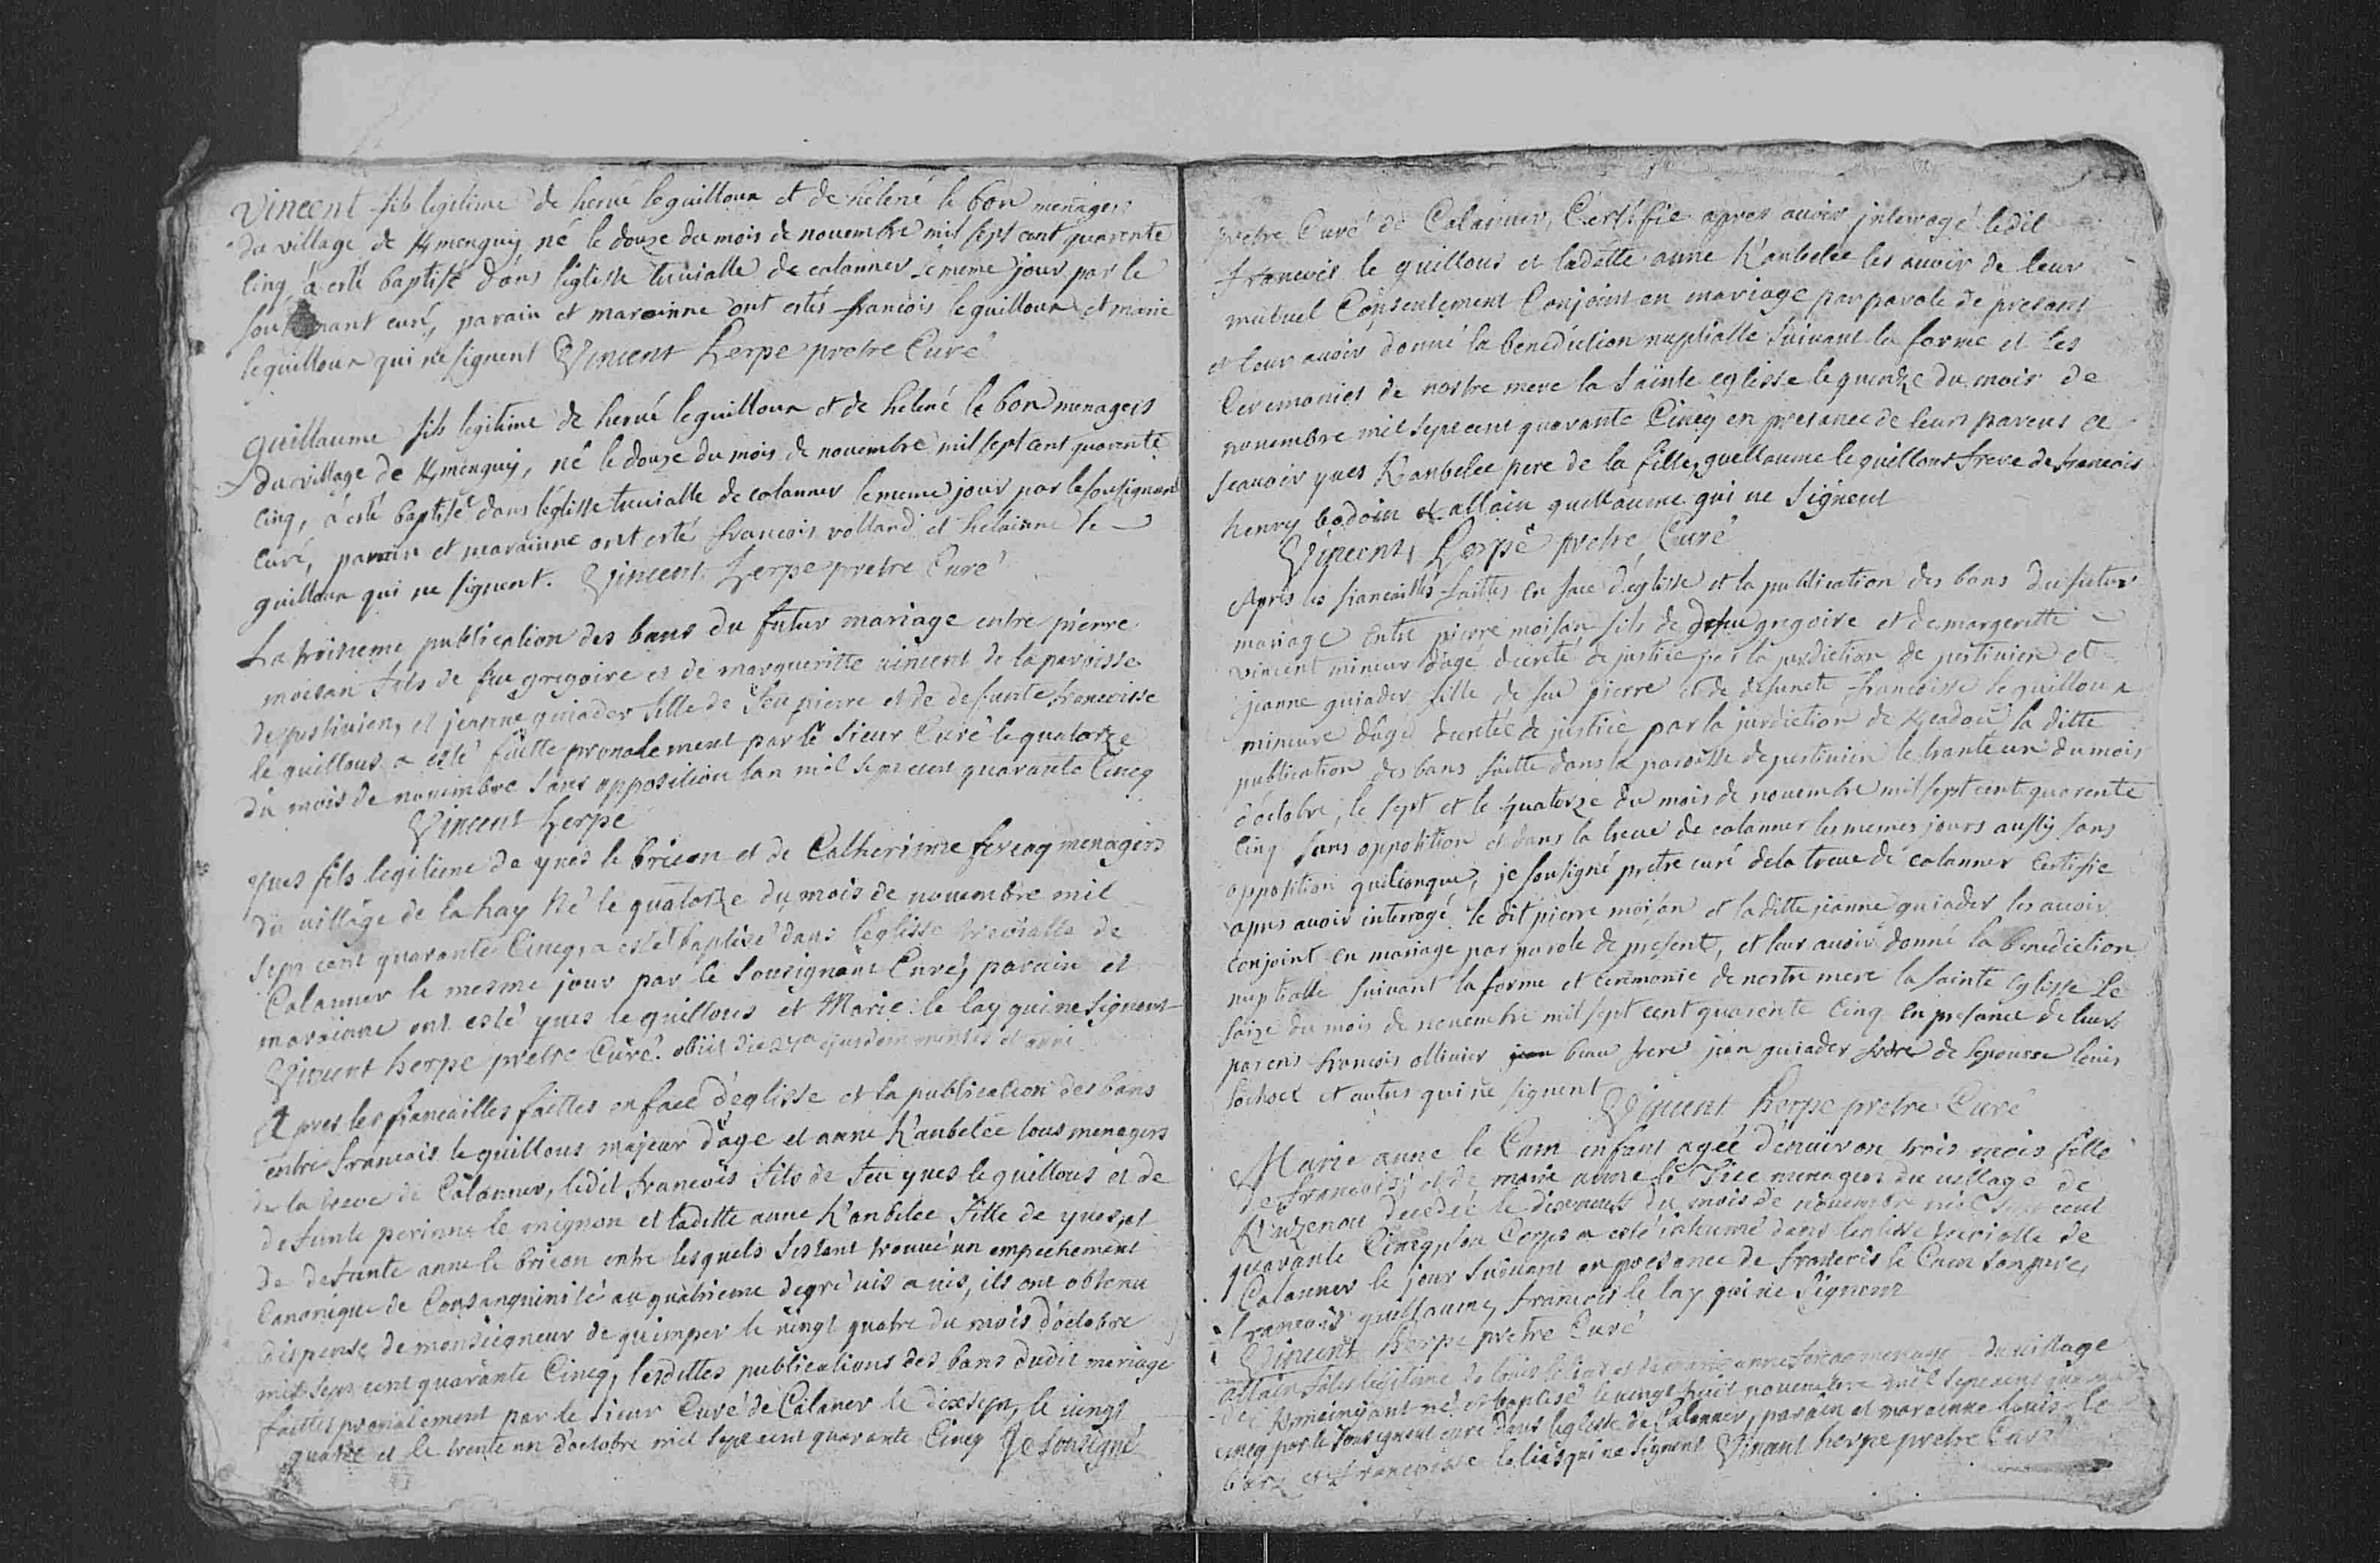 Vincent fils legitime de hervé leguilloux et de heléne le bon menagers
du village de Kmenguy né le douze du mois de novembre mil sept cent quarente
cinq, a esté baptisé dans léglisse treuialle de calanner le meme jour par le
curé, parain et marainne ont estés francois leguilloux et marie
leguilloux qui ne signent Vincent herpe pretre Curé
guillaume fils legitime de hervé leguilloux et de heléné le bon menagers
du village de Kmenguy, né le douze du mois de novembre mil sept cent quarente
cinq, a esté baptisé dans léglisse treuialle de calanner le meme jour par le sousignant
curé, parain et marainne ont esté francois vollard et helainne le
guilloux qui ne signent. Vincent herpe pretre Curé
La troisieme publication des bans du futur mariage entre pierre
moisan fils de feu gregoire et de margueritte vincent de la paroisse
de pestivien, et jeanne guiader fille de feu pierre et de defunte francoisse
le guillous a esté faitte pronalement par le sieur Curé le quatorze
du mois de nouimbre sans opposition lan mil sept cent quarante Cincq
Vincent herpe
yues fils legitime de yues le bricon et de Catherinne fercoq menagers
du village de la hay né le quatorze du mois de nouembre mil
sept cent quarante Cincq, a esté baptisé dans leglisse treuialle de
Calanner le mesme jour par le sousignant Curé, parain et
marainne ont esté yues le guillous et Marie le lay qui ne signent
Vincent herpe pretre Curé. obiit die 27a ejusdem mensis et anni
Apres les fiancailles faittes en face d'eglisse et la publication des bans
entre francois le guillous majeur d'age et anne K'anbelée tous menagers
de la treve de Calanner, ledit francois fils de feu yues le guillous et de
defunte perinne le mignon et laditte anne K'anbelée fille de yues, et
de defunte anne le bricon entre lesquels sestant trouué un empechement
Canonique de Consanguinité au quatrieme degré uis a uis, ils ont obtenu
dispense de monseigneur de quimper le uingt quatre du mois d'octobre
mil sept cent quarante Cincq, lesdittes publications des bans dudit mariage
faittes pronalement par le sieur Curé de Calaner le dixsept, le uingt
quatre et le trente un d'octobre mil sept cent quarante Cincq Je Sousigné
pretre Curé de Calanner, Certifie apres auoir jnterrogé ledit
francois le guillous et laditte anne K'anbelée les auoir de leur
mutuel Consentement Conjoint en mariage par parole de presant
et leur auoir donné la benediction nuptialle suivant la forme et les
Ceremonies de nostre mere la sainte eglisse le quinze du mois de
nouembre mil sept cent quarante Cincq en presance de leurs parens a
scauoir yues K'anbelée pere de la fille, guillaume le guillous frere de francois
henry bodoin et allain guillaume qui ne signent
Vincent herpe pretre Curé
Apres les fiancailles faittes en face d'eglisse et la publication des bans du futur
mariage entre pierre moisan fils de gregoire et de margeritte
vincent mineur d'agé decreté de justice par la jurdiction de pestivien et
jeanne guiader fille de feu pierre et de defuncte francoisse le guilloux
mineure d'agé decretée de justice par la jurdiction de la ditte
publication des bans faitte dans la paroisse de pestivien le trante un du mois
d'octobre, le sept et le quatorze du mois de nouembre mil sept cent quarente
cinq sans opposition et dans la treue de calanner les memes jours aussy sans
opposition quelconque, je sousigné pretre curé de la treue de calanner certifie
apres avoir interrogé le dit pierre moisan et la ditte jeanne guiader les auoir
conjoint en mariage par parole de present, et leur auoir donné la benediction
nuptialle suivant la forme et ceremonie de nostre mere la sainte eglisse le
saize du mois de nouembre mil sept cent quarente cinq en presance de leurs
parens francois ollivier beau frere jean guiader frere de lepousse louis
et autres qui ne signent Vincent herpe pretre Curé
Marie anne le Cam enfant agée d'enuiron trois mois fille
de francois, et de marie anne le menagers du uillage de
decedée le dixneuf du mois de nouembre mil sept cent
quarante Cincq, son Corps a esté inhumé dans leglisse treuialle de
Calanner le jour suiuant en presance de francois le Cam son pere,
francois guillaume, francois le lay qui ne signent
Vincent herpe pretre Curé
allain fils legitime de louis et de marie anne menagers du uillage
de né et baptisé le uingt huit nouembre mil sept cent quarante
cincq par le sousignant curé dans leglisse de Calanner, parain et marainne louis le
et francoisse qui ne signent Vincent herpe pretre Curé